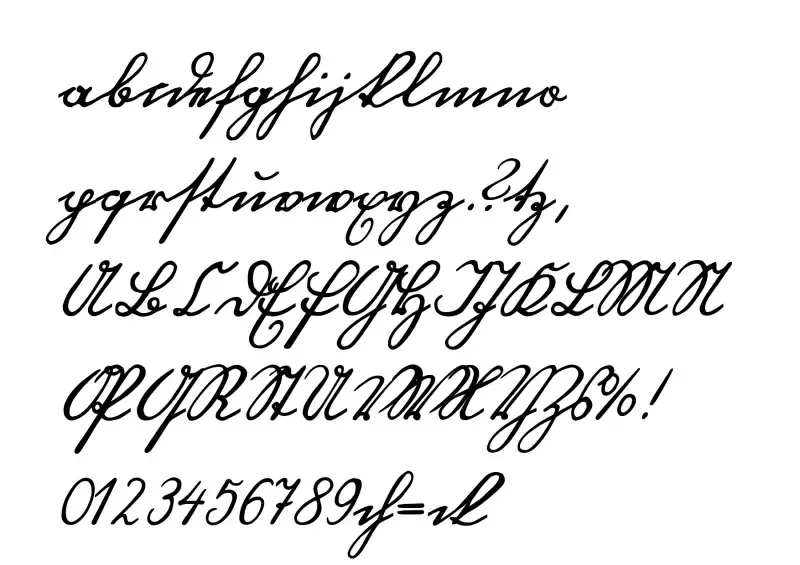 abcdefghijklmno
pqrstuvwxyz.?tz,
ABCDEFGHIJKLMN
OPQRSTUVWXYZ%!
0123456789ch=ck